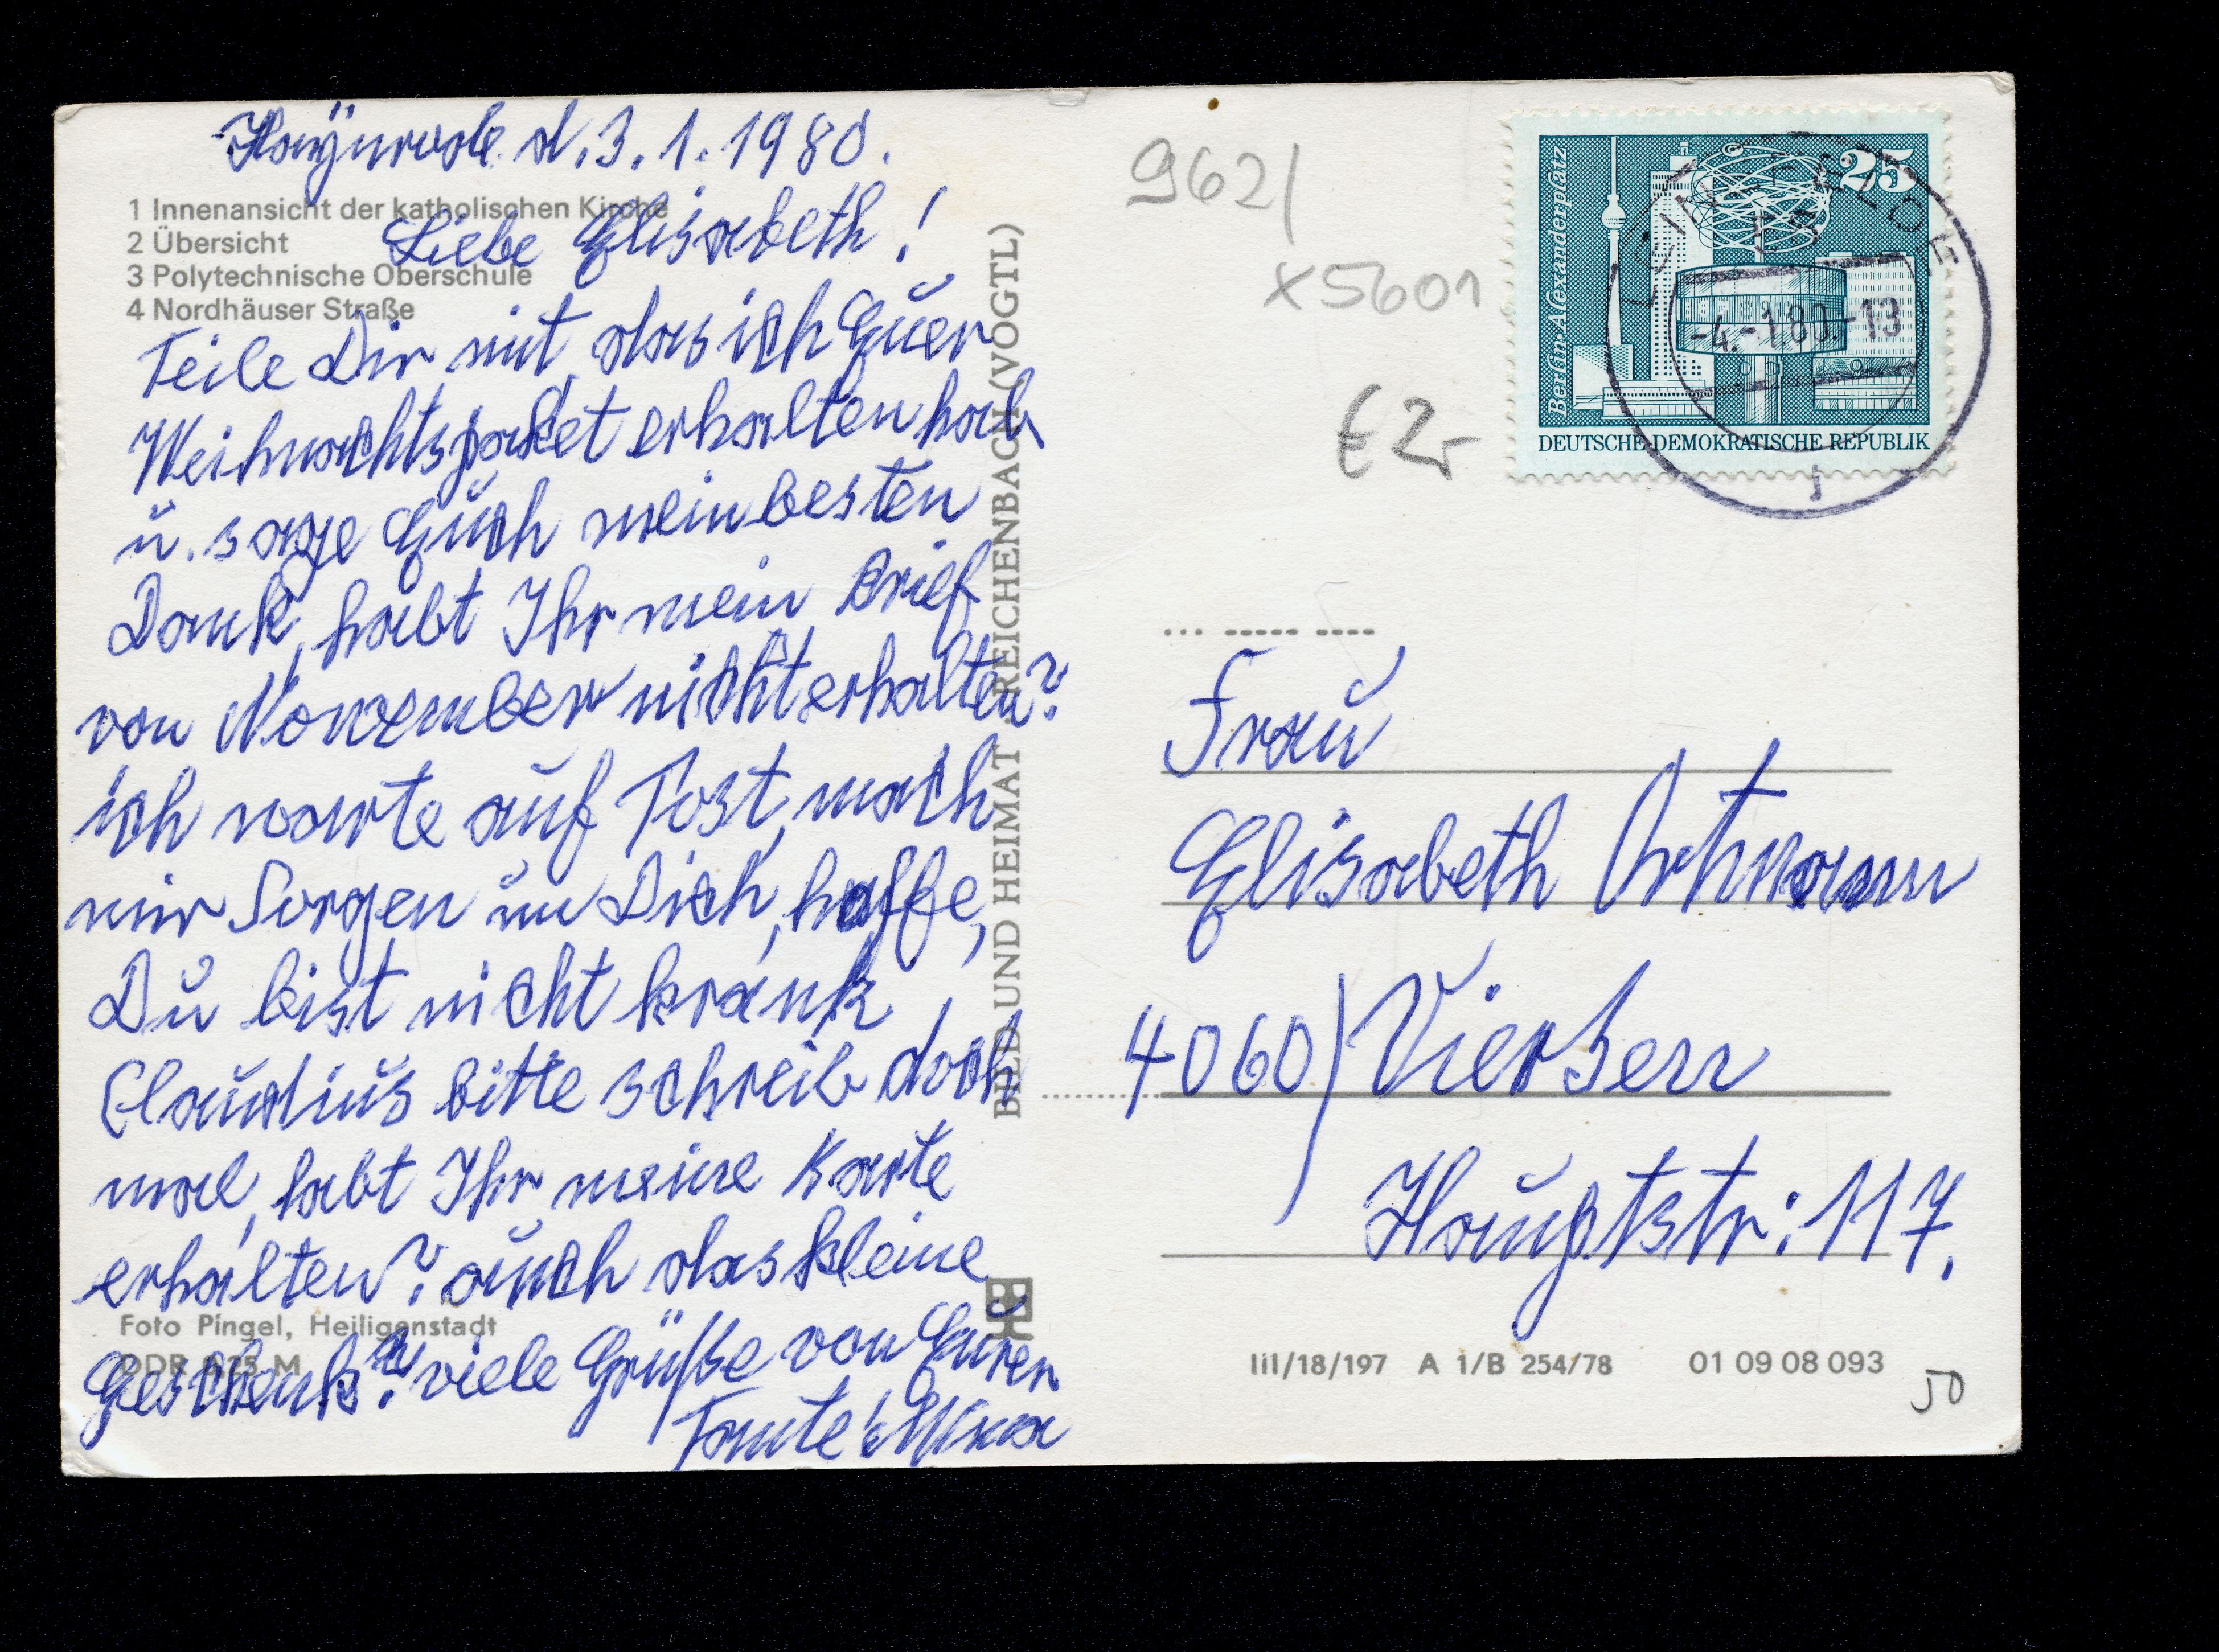 Haÿnrode d. 3. 1. 1980.
1 Innenansicht der katholischen Kirche
2 Übersicht
3 Polytechnische Oberschule
4 Nordhäuser Straße
Liebe Elisabeth!
Teile Dir mit das ich Euer
Weihnachtspacket erhalten hab
u. sage Euch mein besten
Dank, habt Ihr mein Brief
von November nicht erhalten?
ich warte auf Post, mach
mir Sorgen um Dich, hoffe,
Du bist nicht krank,
Claudius bitte schreib doch
mal, habt Ihr meine Karte
erhalten? auch das kleine
Geschenk? viele Grüße von Eurer
Tante
Foto Pingel, Heiligenstadt
DDR M
BILD UND HEIMAT REICHENBACH (VOGTL)
962/
x5601
€ 2,-
Berlin-Alexanderplatz
25
DEUTSCHE DEMOKRATISCHE REPUBLIK
-4.-1.80-18
Frau
Elisabeth Ortmann
4060/ Viersen
Hauptstr: 117.
III/18/197 A 1/B 254/78 01 09 08 093
50